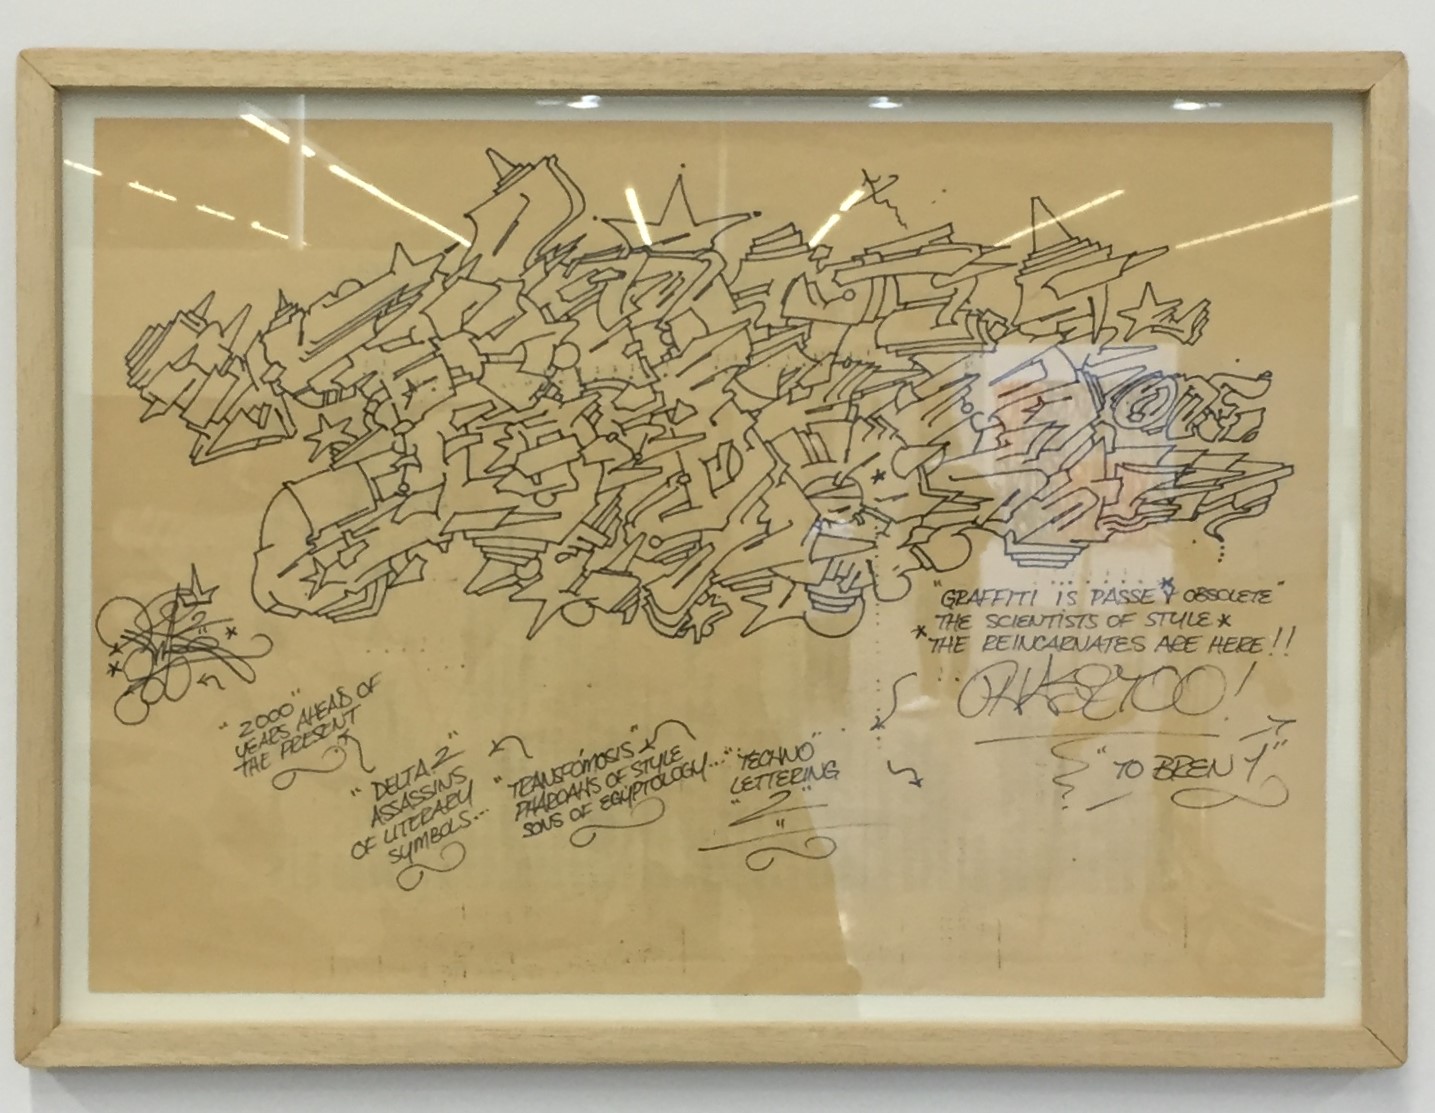 "GRAFFITI IS PASSE & OBSOLETE"
THE SCIENTISTS OF STYLE *
* THE REINCARNATES ARE HERE!!
PHASE TOO!
"TO BREN 1"
"2000"
YEARS AHEAD OF
THE PRESENT
"DELTA 2"
ASSASSINS
OF LITERARY
SYMBOLS...
"TRANSFOMOSIS"
PHAROAHS OF STYLE
SONS OF EGYPTOLOGY...
"TECHNO"
LETTERING
"2"